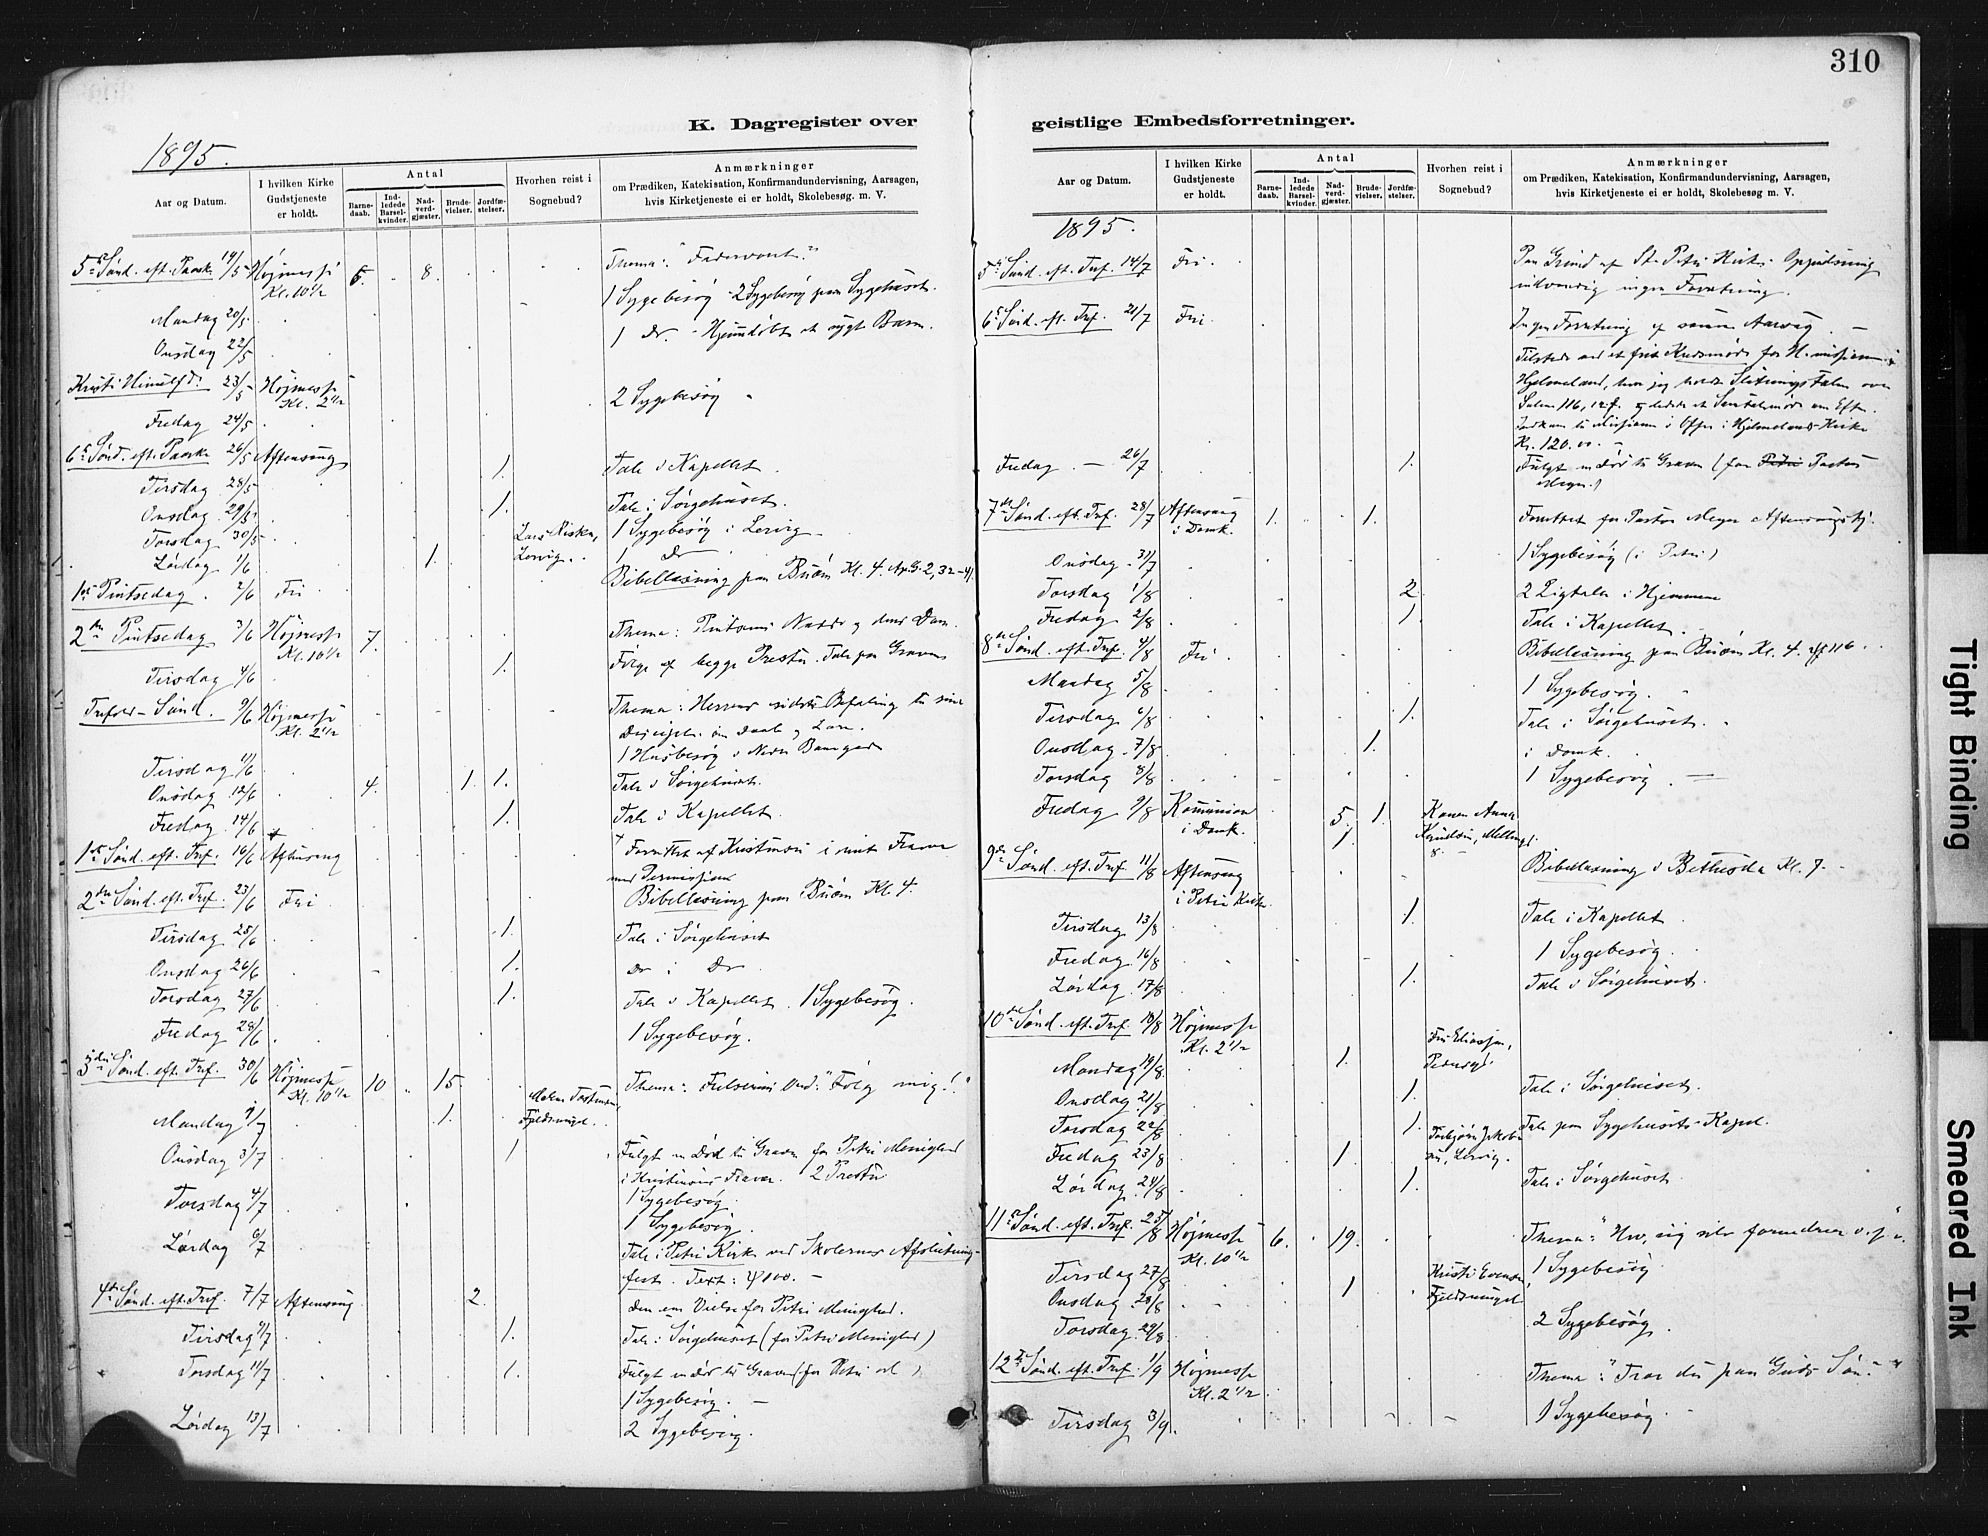 310
K. Dagregister over
geistlige Embedsforretninger.
1895.
Aar og Datum.
I hvilken Kirke Gudstjeneste er holdt.
Antal
Barnedaab.
Indledede Barselkvinder.
Nadverdgjæster.
Brudevielser.
Jordfæstelser.
Hvorhen reist i Sognebud?
Anmærkninger
om Prædiken, Katekisation, Konfirmandundervisning, Aarsagen,
hvis Kirketjeneste ei er holdt, Skolebesøg m. V.
5te Sønd. eft. Paaske 19/5 Højmesse Kl. 10 1/2 6. 8. Thema: "Fadervort"
1 Sygebesøg - 2 Sygebesøg paa Sygehuset.
Mandag 20/5 1 do. - Hjemmedøbt et sygt Barn.
Onsdag 22/5
Kristi Himmelfd. 23/5 Højmesse Kl. 2 1/2
2 Sygebesøg
Fredag 24/5
6te Sønd. eft. Paaske 26/5 Aftensang
1. Tale i Kapellet.
Tirsdag 28/5 1. Tale i Sørgehuset.
Onsdag 29/5 1 Sygebesøg i Lervig
Torsdag 30/5 1 do
Lørdag 1/6 1. Lervig. Bibellæsning paa Buøen Kl. 4. Ap.G. 2, 32-41.
1ste Pintsedag 2/6 Fri
2den Pintsedag 3/6 Højmesse Kl. 10 1/2 7. Thema:
Tirsdag 4/6 1. Følge af begge Prester. Tale paa Graven
Trefold-Sønd. 9/6 Højmesse Kl. 2 1/2 Thema: Herrens sidste Befaling til sine
Disciple om Daab og Lære.
Tirsdag 11/6 1 Husbesøg
Onsdag 12/6 4. 1. 1. Tale i Sørgehuset.
Fredag 14/6 1. Tale i Kapellet
1ste Sønd. eft. Tref. 16/6 Aftensang Forrettet af i mit Fravær
med Permission
2den Sønd. eft. Tref. 23/6 Fri Bibellæsning paa Buøen Kl. 4.
Tirsdag 25/6 1. Tale i Sørgehuset
Onsdag 26/6 1. do i do
Torsdag 27/6 1. Tale i Kapellet. 1 Sygebesøg.
Fredag 28/6 1 Sygebesøg.
3die Sønd. eft. Tref. 30/6 Højmesse Kl. 10 1/2 10 15. Thema: Frelserens Ord: "Følg mig!"
Mandag 1/7 1.
Onsdag 3/7 1 Fulgt en Død til Graven for Petri Menighed
i Fravær. 2 Prester
Torsdag 4/7 1 Sygebesøg.
1 Sygebesøg.
Lørdag 6/7 Tale i Petri Kirke ved Skolernes Afslutnings-
fest. Text: ψ 100. -
4de Sønd. eft. Tref. 7/7 Aftensang 2. Den ene Vielse for Petri Menighed.
Tirsdag 9/7 1. Tale i Sørgehuset (for Petri Menighed)
Torsdag 11/7 1. Fulgt en Død til Graven (for Petri
1 Sygebesøg. -
Lørdag 13/7 2 Sygebesøg.
Aar og Datum.
I hvilken Kirke Gudstjeneste er holdt.
Antal
Barnedaab.
Indledede Barselkvinder.
Nadverdgjæster.
Brudevielser.
Jordfæstelser.
Hvorhen reist i Sognebud?
Anmærkninger
om Prædiken, Katekisation, Konfirmandundervisning, Aarsagen,
hvis Kirketjeneste ei er holdt, Skolebesøg m. V.
1895.
5te Sønd. eft. Tref. 14/7 Fri. Paa Grund af St. Petri Kirkes Oppudsning
indvendig ingen Forretning.
6te Sønd. eft. Tref. 21/7 Fri. Ingen Forretning af samme Aarsag. -
Tilstede ved et frit Kredsmøde for H.missionen i
Hjelmeland, hvor jeg holdt Slutningstalen over
Salme 116, 12 f. og ledede et Samtalemøde om Eft.
Indkom til Missionen i Offer i Hjelmelands Kirke
Kr. 120.00. -
Fredag 26/7 1. Fulgt en Død til Graven (for Pastor
Meyer)
7de Sønd. eft. Tref. 28/7 Aftensang i Domk. 1. 1. Forrettet for Pastor Meyer Aftensangstj.
Onsdag 31/7 1 Sygebesøg (i Petri)
Torsdag 1/8 2 2 Ligtaler i Hjemmene
Fredag 2/8 1. Tale i Kapellet.
8de Sønd. eft. Tref. 4/8 Fri. Bibellæsning paa Buøen Kl. 4. ψ 116.
Mandag 5/8 1 Sygebesøg.
Tirsdag 6/8 1. Tale i Sørgehuset.
Onsdag 7/8 1. i Domk.
Torsdag 8/8 1 Sygebesøg. -
Fredag 9/8 Komunion i Domk. 5. 1. Konen Anna
1. Knudsen,
9de Sønd. eft. Tref. 11/8 Aftensang i Petri Kirke. Bibellæsning i Bethesda Kl. 7.
Tirsdag 13/8 1. Tale i Kapellet.
Fredag 16/8 1 Sygebesøg.
Lørdag 17/8 1. Tale i Sørgehuset.
10de Sønd. eft. Tref. 18/8 Højmesse Kl. 2 1/2
Mandag 19/8 1. Fru Eliassen,
Onsdag 21/8 1. Tale i Sørgehuset.
Torsdag 22/8 1. Tale paa Sygehusets Kapel.
Fredag 23/8 1. Lervig.
Lørdag 24/8 1. Tale i Sørgehuset
11te Sønd. eft. Tref. 25/8 Højmesse Kl. 10 1/2 6. 19. Thema:
Tirsdag 27/8 1 Sygebesøg
Onsdag 28/8 1
Torsdag 29/8 2 Sygebesøg.
12te Sønd. eft. Tref. 1/9 Højmesse Kl. 2 1/2 Thema: "Tror du paa Guds Søn."
Tirsdag 3/9. 1 Sygebesøg.
Tight Binding
Smeared Ink